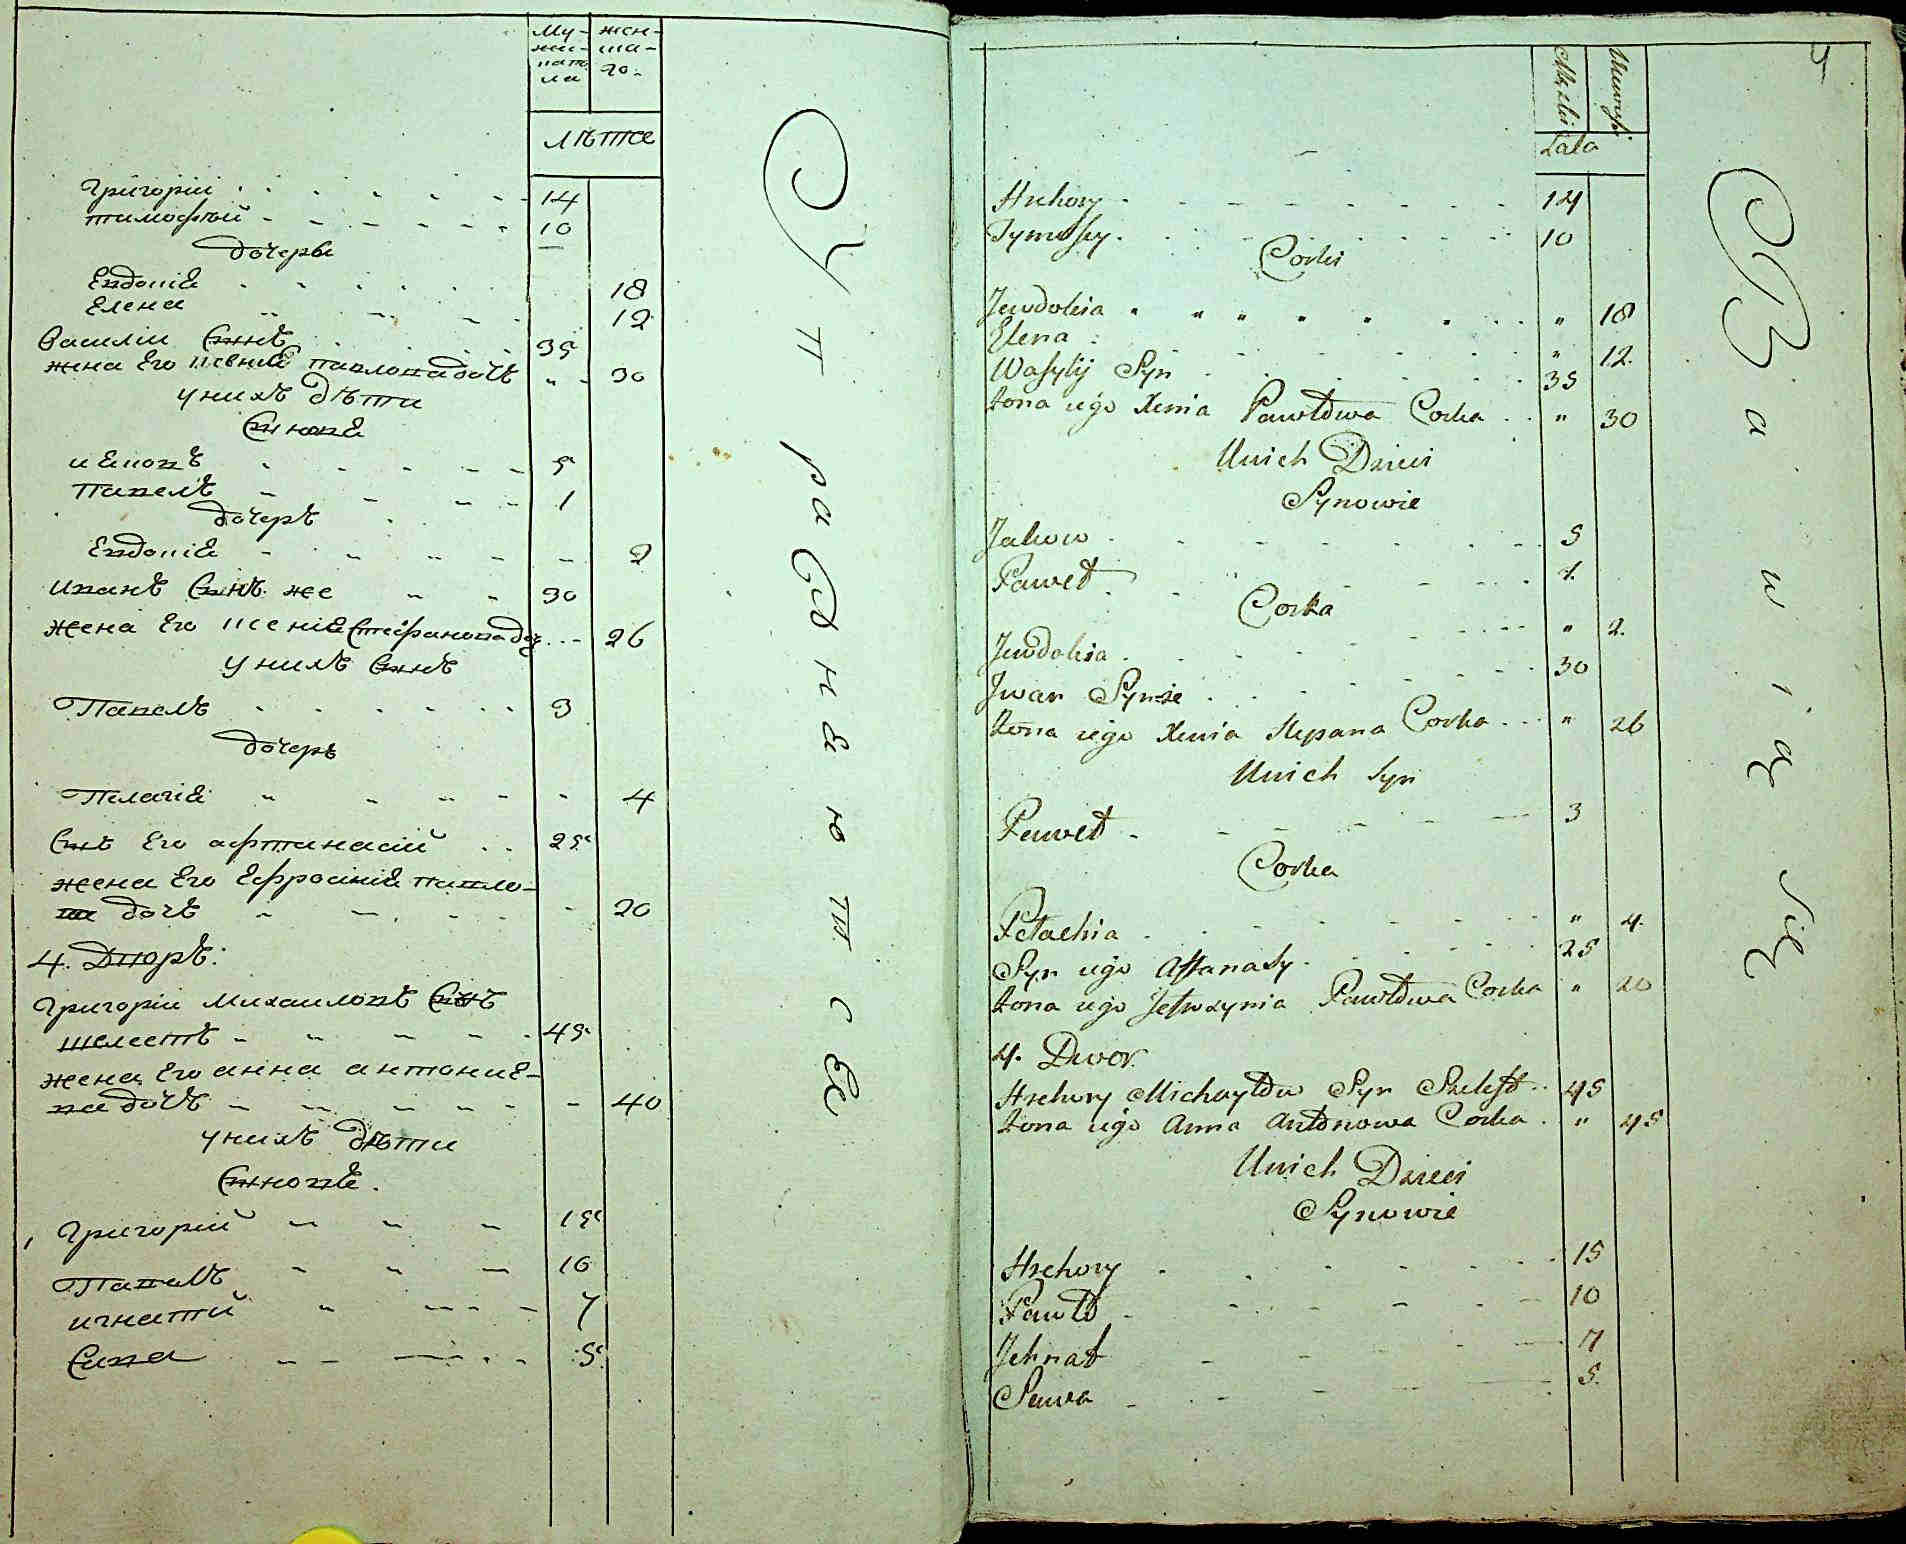 Му-
жес-
каго-
лѣта
Григорій 14
тимофѣй 10
дочеры
Евдокіѣ 18
Елена 12
Василіи Сынъ 35
жена Его павлова дочъ 30
у нихъ дѣти
Сыновѣ
5
Павелъ 1
дочеръ
Евдокіѣ 2
Иванъ Сынъ же 30
жена Его ксеніѣ Стефанова доч 26
у нихъ Сынъ
Павелъ 3
дочерь
Пелагіѣ 4
Сынъ Его афтанасій 25
жена Его Ефросиніѣ павло-
ва дочъ 20
4. Дворъ:
Григоріи Михаиловъ Сынъ
шелестъ 45
жена Его анна антоніе-
ва дочъ 40
у нихъ дѣти
Сыновѣ.
Григорій 15
Павелъ 10
игнатій 7
Сава 5
УправлѣютсЕ
4
Lata
Hrehory 14
Tymofiey 10
Corki
Jewdokia " 18
Elena " 12
Wasylij Syn 35
Żona iego Xenia Pawłowa Corka " 30
Unich Dzieci
Synowie
Jakow 5
Paweł 1
Corka
Jewdokia " 2
Jwan Synże 30
Żona iego Xenia Stepana Corka " 26
Unich Syn
Paweł 3
Corka
Pełachia " 4
Syn iego Affanasy 25
Żona iego Jefrozynia Pawłowa Corka " 20
4. Dwor
Hrehory Michayłow Syn Szelest 45
Żona iego Anna Antonowa Corka " 45
Unich Dzieci
Synowie
Hrehory 15
Paweł 10
Jehnat 7
Sawa 5
Bawią się